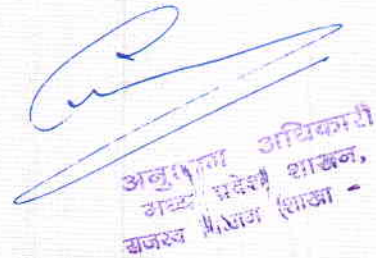 अनुभाग अधिकारी
मध्य प्रदेश शासन,
राजस्व विभाग (शाखा -